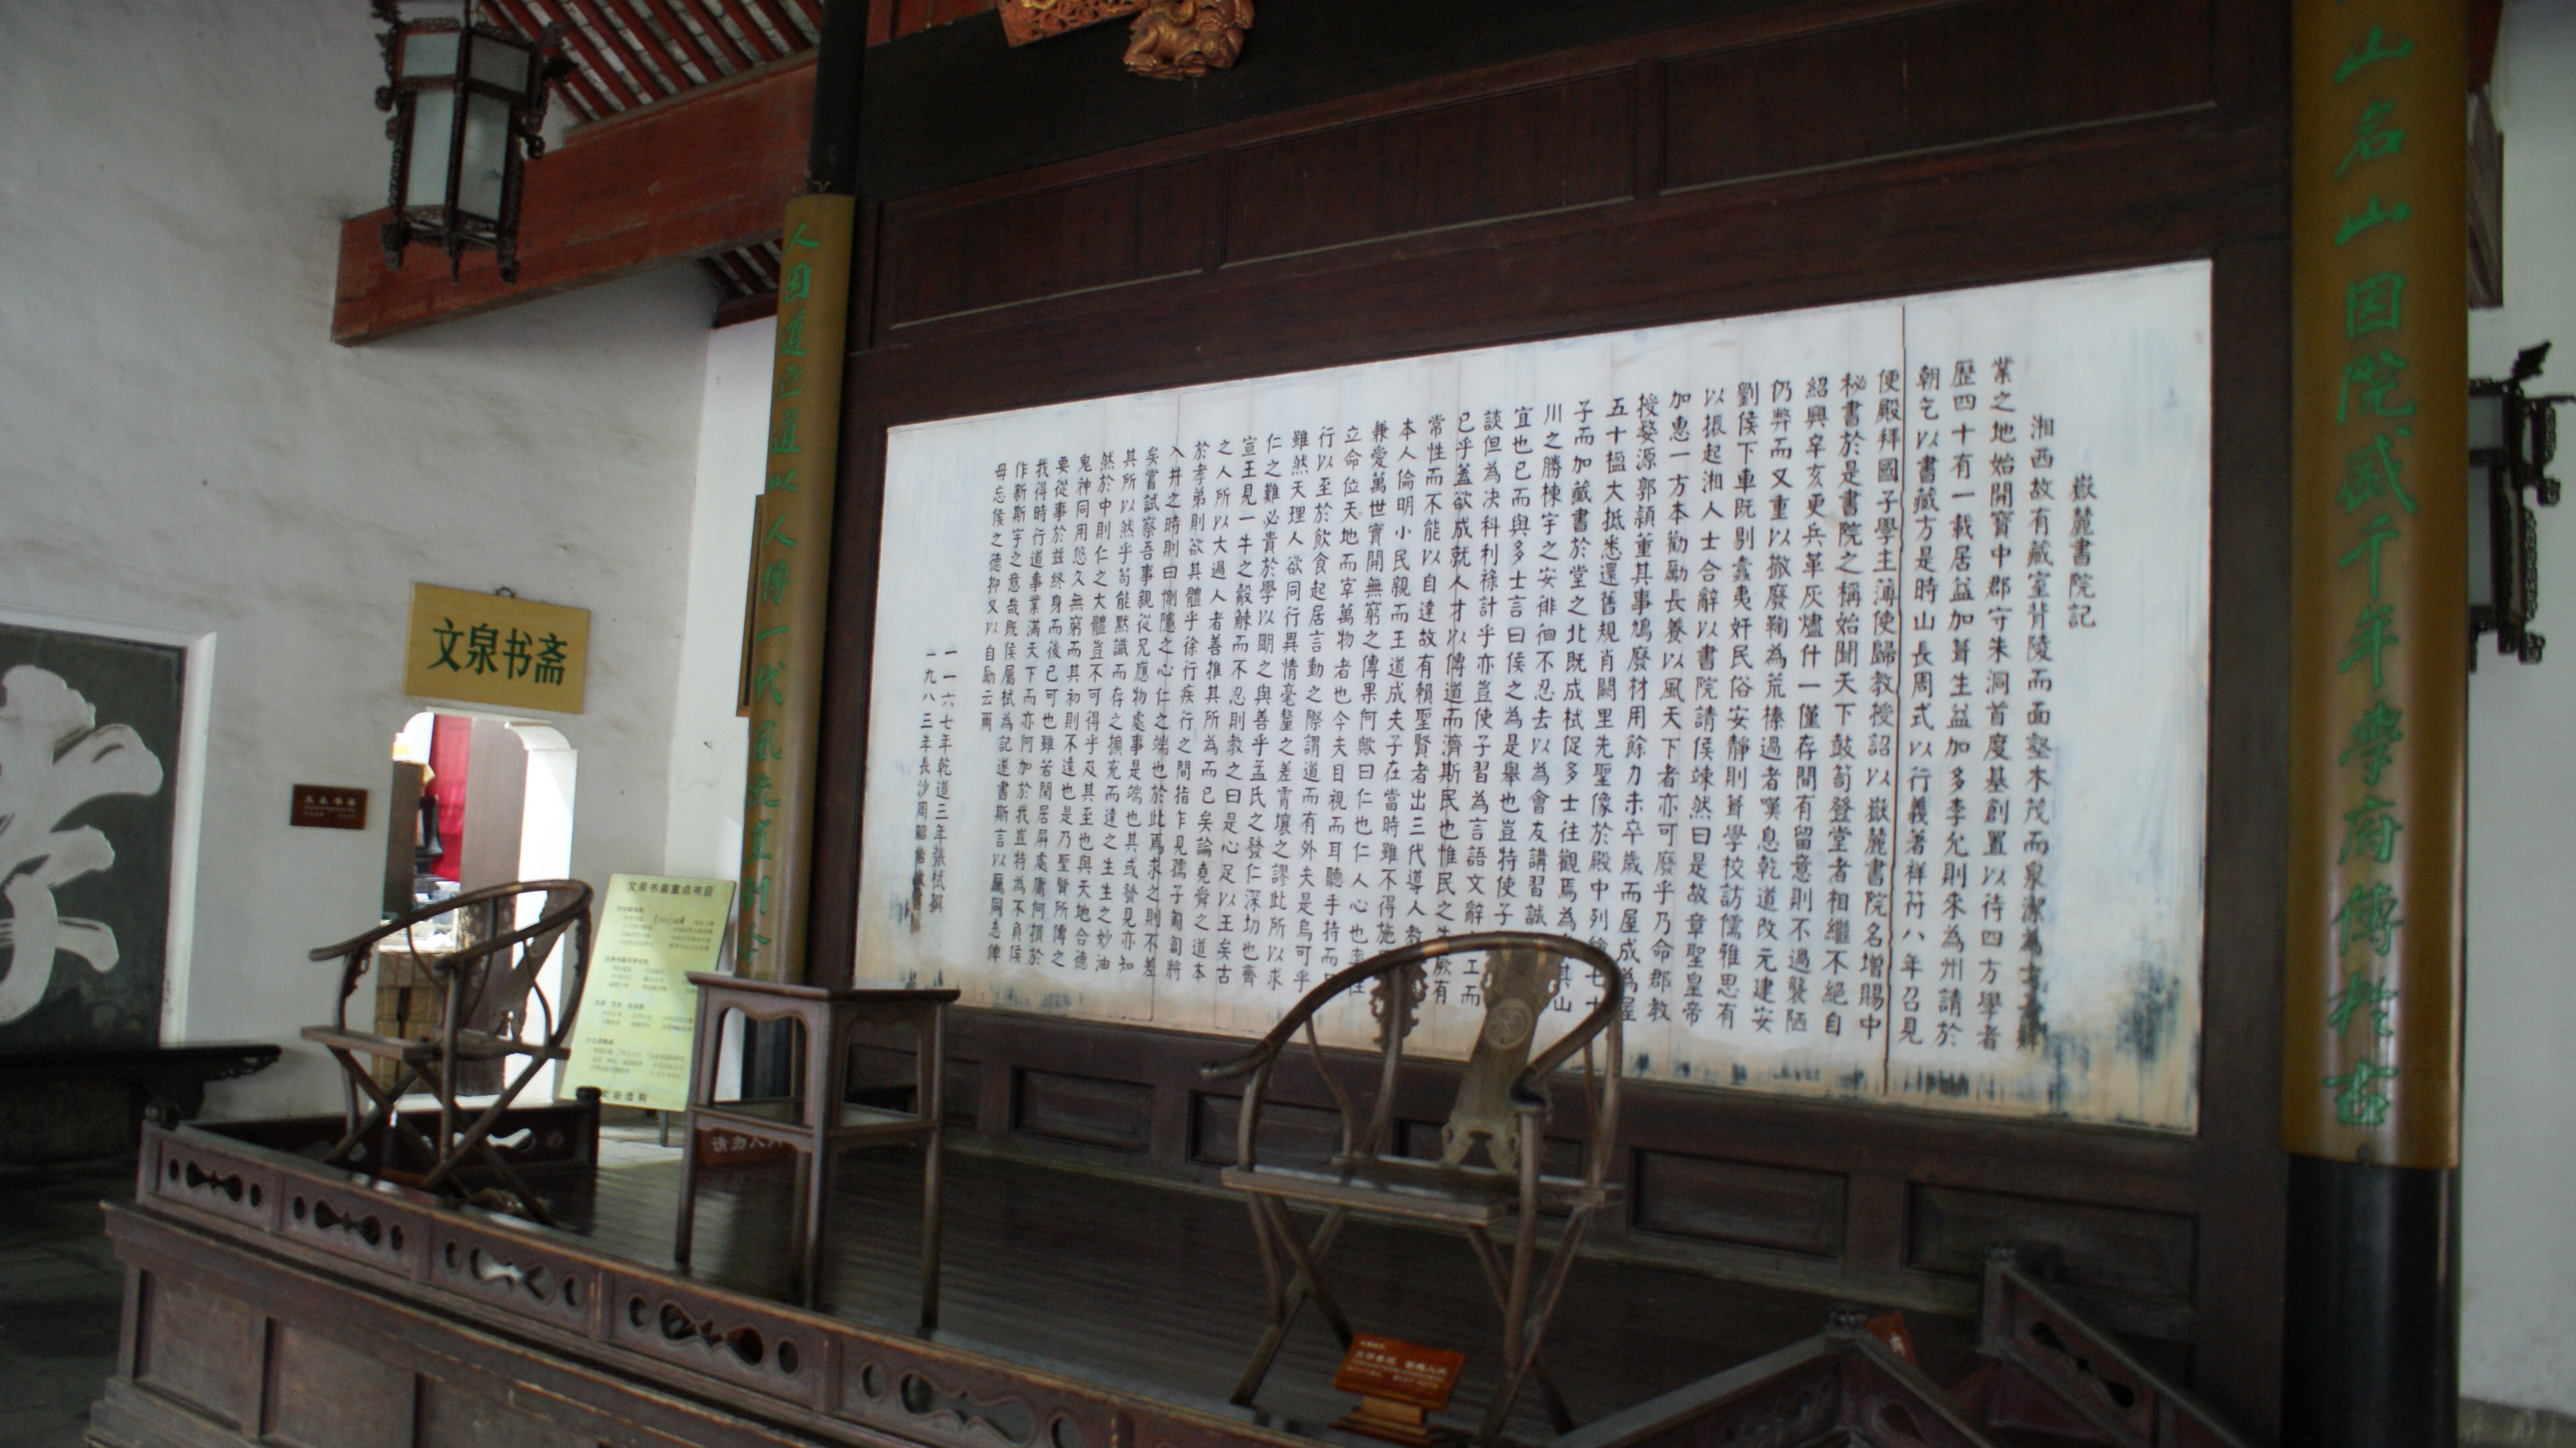 嶽麓書院記
湘西故有藏室背陵而面壑木茂而泉潔為士子肄
業之地始開寶中郡守朱洞首度基創置以待四方學者
歷四十有一載居益加葺生益加多李允則來為州請於
朝乞以書藏方是時山長周式以行義著祥符八年召見
便殿拜國子學主薄使歸教授詔以嶽麓書院名增賜中
秘書於是書院之稱始聞天下鼓笥登堂者相繼不絕自
紹興辛亥更兵革灰燼什一僅存間有留意則不過襲陋
仍弊而又重以撤廢鞠為荒榛過者嘆息乾道改元建安
劉侯下車既剔蠹夷奸民俗安靜則葺學校訪儒雅思有
以振起湘人士合辭以書院請侯竦然曰是故章聖皇帝
加惠一方本勸勵長養以風天下者亦可廢乎乃命郡教
授婺源郭穎董其事鳩廢材用餘力未卒歲而屋成為屋
五十楹大抵悉還舊規肖闕里先聖像於殿中列繪七十
子而加藏書於堂之北既成栻促多士往觀焉為其山
川之勝棟宇之安徘徊不忍去以為會友講習誠
宜也已而與多士言曰侯之為是舉也豈特使子
談但為决科利祿計乎亦豈使子習為言語文辭工而
已乎蓋欲成就人才以傳道而濟斯民也惟民之生厥有
常性而不能以自達故有賴聖賢者出三代導人教
本人倫明小民親而王道成夫子在當時雖不得施
兼愛萬世實開無窮之傳果何歟曰仁也仁人心也率性
立命位天地而宰萬物者也今夫目視而耳聽手持而足
行以至於飲食起居言動之際謂道而有外夫是烏可乎
雖然天理人欲同行異情毫釐之差霄壤之謬此所以求
仁之難必貴於學以明之與善乎孟氏之發仁深切也齊
宣王見一牛之觳觫而不忍則教之曰是心足以王矣古
之人所以大過人者善推其所為而已矣論堯舜之道本
於孝弟則欲其體乎徐行疾行之間指乍見孺子匍匐將
入井之時則曰惻隱之心仁之端也於此焉求之則不差
矣嘗試察吾事親從兄應物處事是端也其或發見亦知
其所以然乎苟能默識而存之擴充而達之生生之妙油
然於中則仁之大體豈不可得乎及其至也與天地合德
鬼神同用悠久無窮而其初則不遠也是乃聖賢所傳之
要從事於茲終身而後已可也雖若閒居屏處庸何損於
我得時行道事業滿天下而亦何加於我豈特為不負侯
作新斯宇之意哉既侯屬栻為記遂書斯言以厲同志俾
毋忘侯之德抑又以自勵云爾
一一六七年乾道三年張栻撰
一九八三年長沙周昭怡敬書
山名山因院盛千年學府傳於古
人因道立道以人傳一代風流直到今
文泉书斋
文泉书斋重点书目
请勿入内